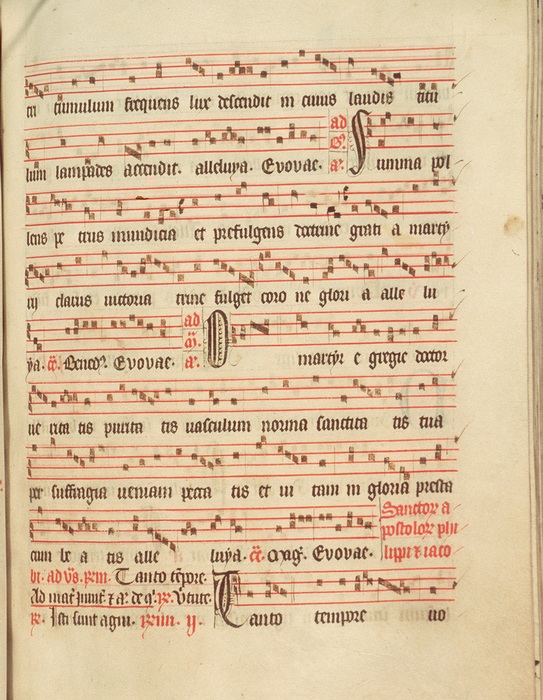 cumulum frequens lux descendit in cuius laudis titu
lum lampades accendit. alleluya. Evovae. ad a. Summa pol
lens pe trus mundicia et prefulgens doctrine grati a marty
rij clarus victoria trine fulget coro ne glori a alle lu
ya. Evovae. ad a. O martyr e gregie doctor
ve rita tis purita tis vasculum norma sanctita tis tua
per suffragia veniam pecca tis et vi tam in gloria presta
cum be a tis alle luya. Mag. Evovae. Sanctor a
postolor phi
lippi et iaco
bi. ad vs. Tanto tempore.
Tanto tempore vo
Isti sunt agni.